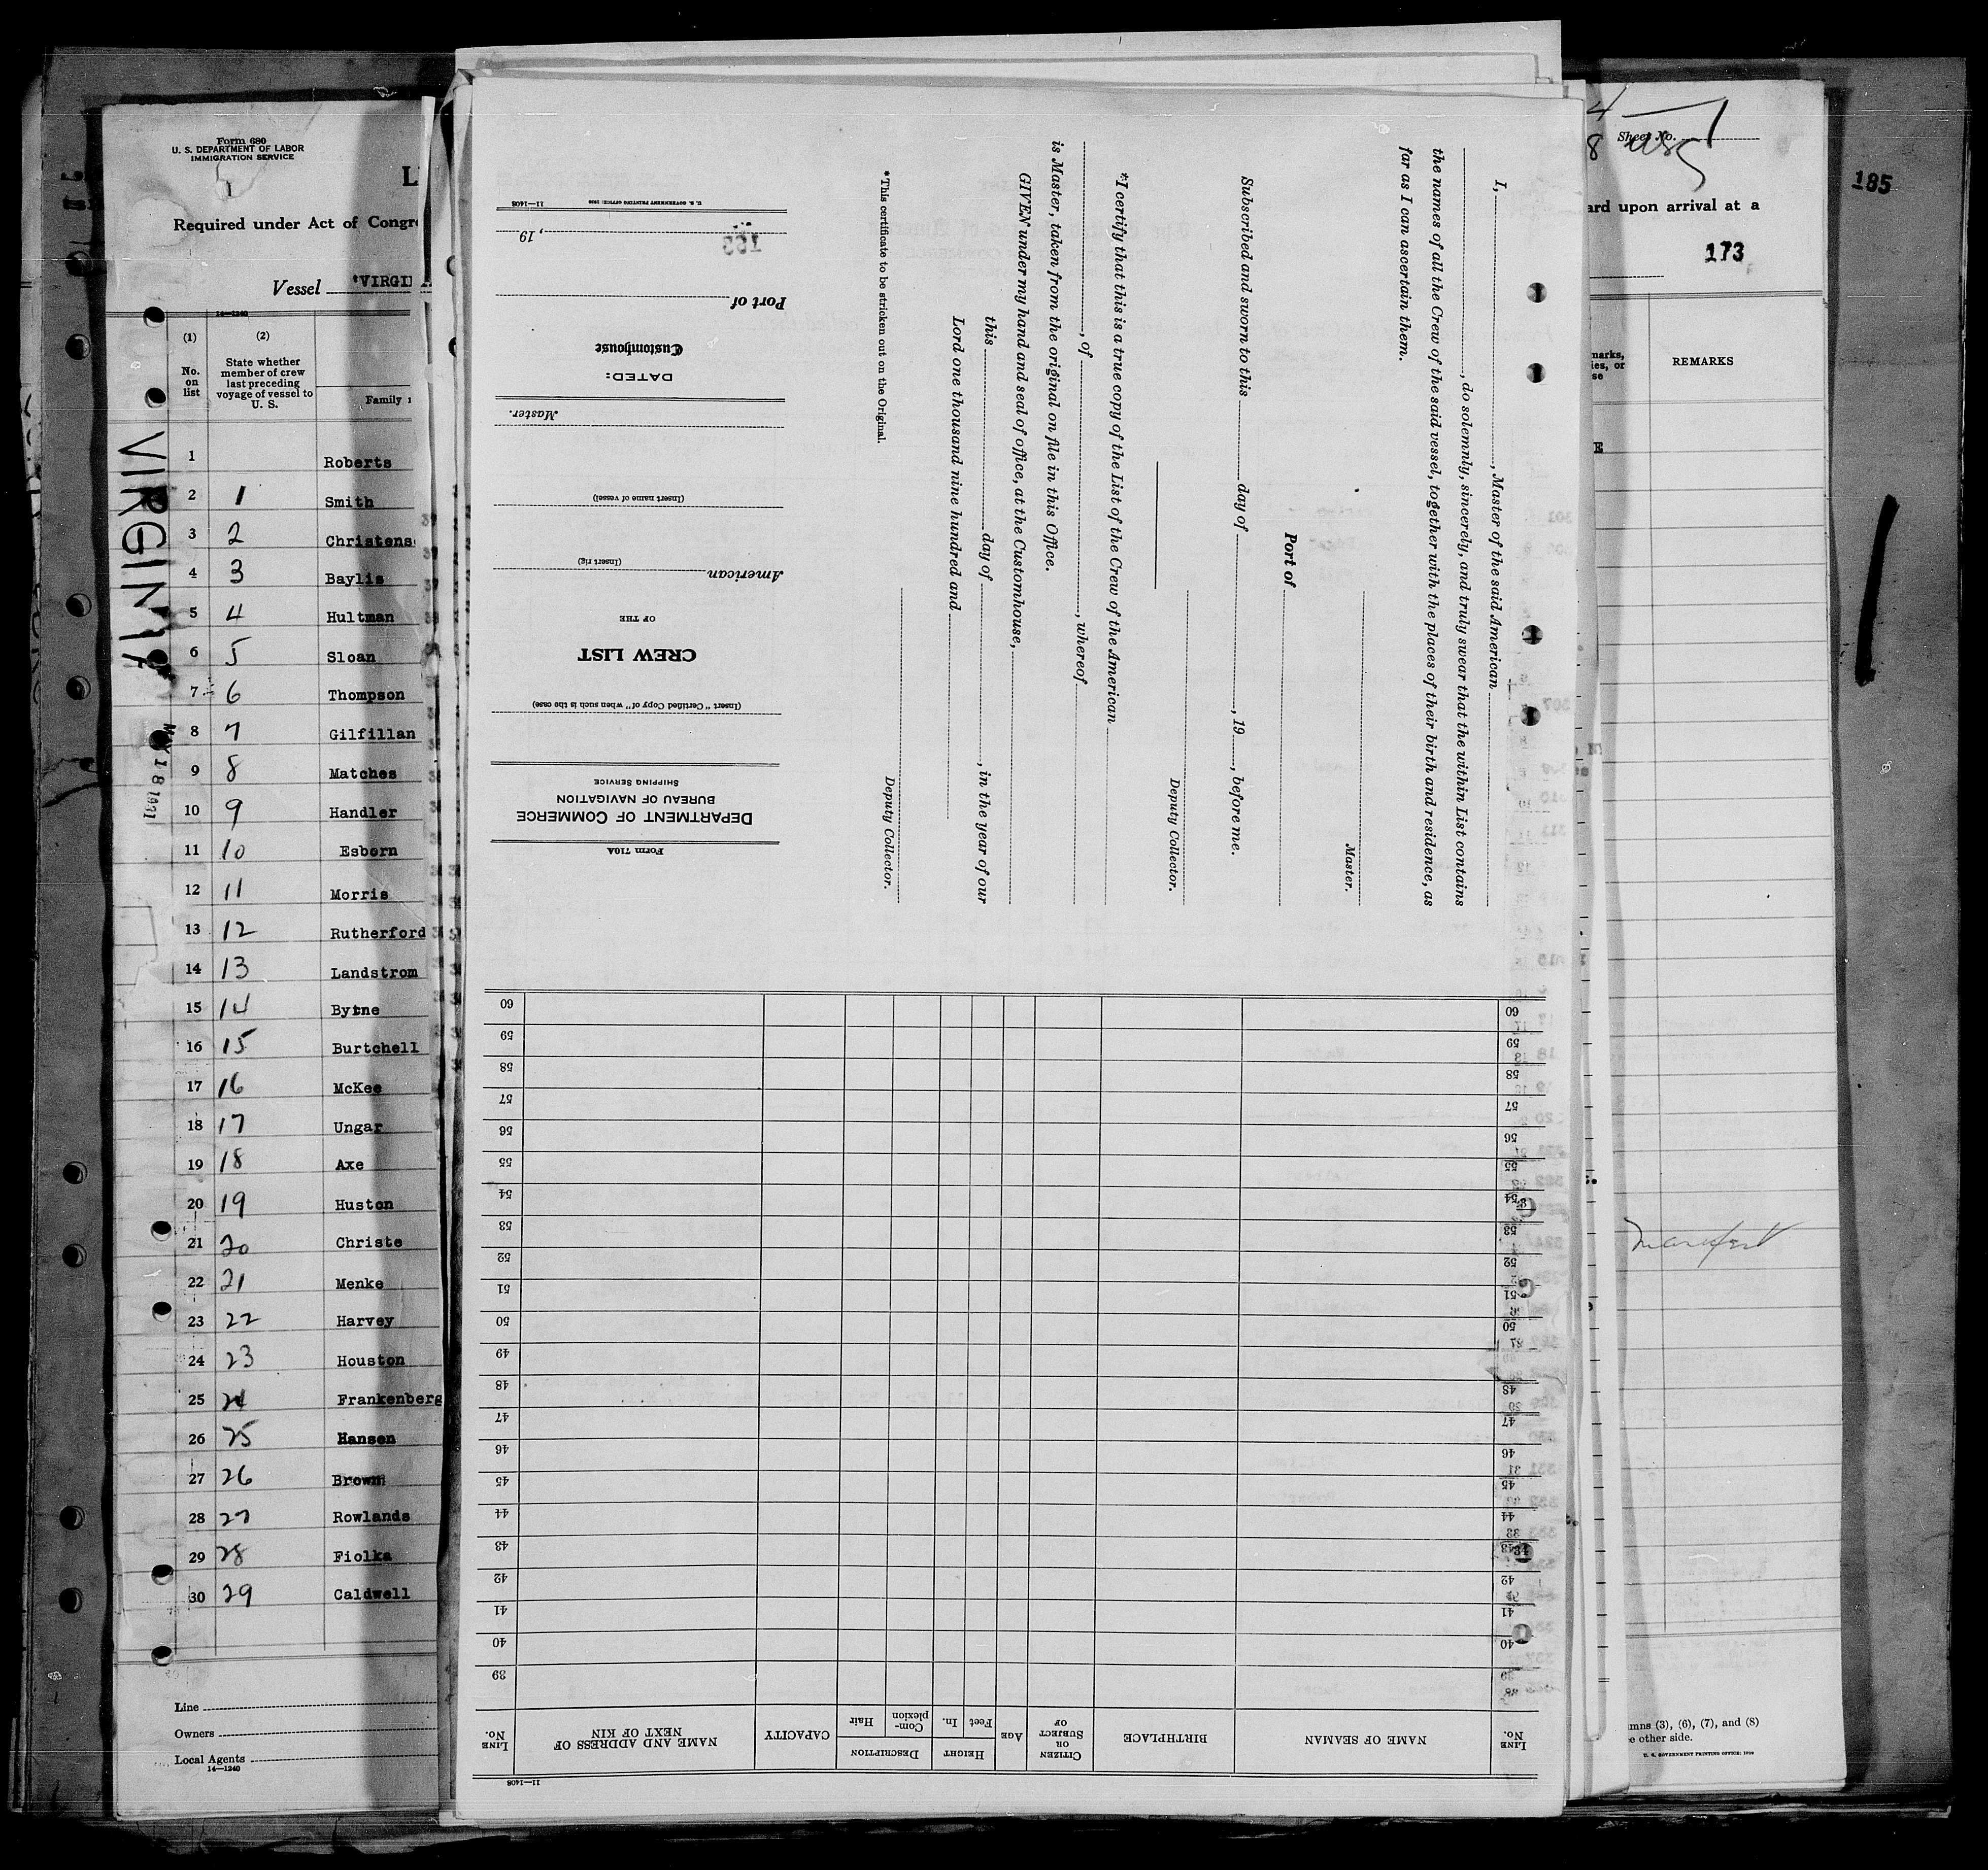 Form 680
U. S. DEPARTMENT OF LABOR
IMMIGRATION SERVICE
Required under Act of Congre
Vessel "VIRGINIA
14—1240
(1) (2)
No. on list
State whether member of crew last preceding voyage of vessel to U. S.
Family
VIRGINIA
MAY 18 1931
1 Roberts
2 1 Smith
3 2 Christens
4 3 Baylis
5 4 Hultman
6 5 Sloan
7 6 Thompson
8 7 Gilfillan
9 8 Matches
10 9 Handler
11 10 Esborn
12 11 Morris
13 12 Rutherford
14 13 Landstrom
15 14 Byrne
16 15 Burtchell
17 16 McKee
18 17 Ungar
19 18 Axe
20 19 Huston
21 20 Christe
22 21 Menke
23 22 Harvey
24 23 Houston
25 24 Frankenberg
26 25 Hansen
27 26 Brown
28 27 Rowlands
29 28 Fiolka
30 29 Caldwell
Line
Owners
Local Agents
14—1240
I, , Master of the said American
, do solemnly, sincerely, and truly swear that the within List contains
the names of all the Crew of the said vessel, together with the places of their birth and residence, as
far as I can ascertain them.
Master.
Port of
Subscribed and sworn to this day of , 19 , before me.
Deputy Collector.
*I certify that this is a true copy of the List of the Crew of the American
, of , whereof
is Master, taken from the original on file in this Office.
GIVEN under my hand and seal of office, at the Customhouse,
this day of , in the year of our
Lord one thousand nine hundred and
Deputy Collector.
*This certificate to be stricken out on the Original.
Form 710A
DEPARTMENT OF COMMERCE
BUREAU OF NAVIGATION
SHIPPING SERVICE
(Insert "Certified Copy of" when such is the case)
CREW LIST
OF THE
American
(Insert rig)
(Insert name of vessel)
Master.
DATED:
Customhouse
Port of
, 19
U. S. GOVERNMENT PRINTING OFFICE: 1930 11—1408
11—1408
LINE No.
NAME OF SEAMAN
BIRTHPLACE
CITIZEN OR SUBJECT OF
AGE
HEIGHT
Feet In.
DESCRIPTION
Complexion Hair
CAPACITY
NAME AND ADDRESS OF NEXT OF KIN
LINE No.
39 39
40 40
41 41
42 42
43 43
44 44
45 45
46 46
47 47
48 48
49
50 50
51 51
52 52
53 53
54 54
55 55
56 56
57 57
58 58
59 59
60 60
Sheet No. 1
ard upon arrival at a
173
185
REMARKS
Manifest
mns (3), (6), (7), and (8)
e other side.
U. S. GOVERNMENT PRINTING OFFICE: 1929